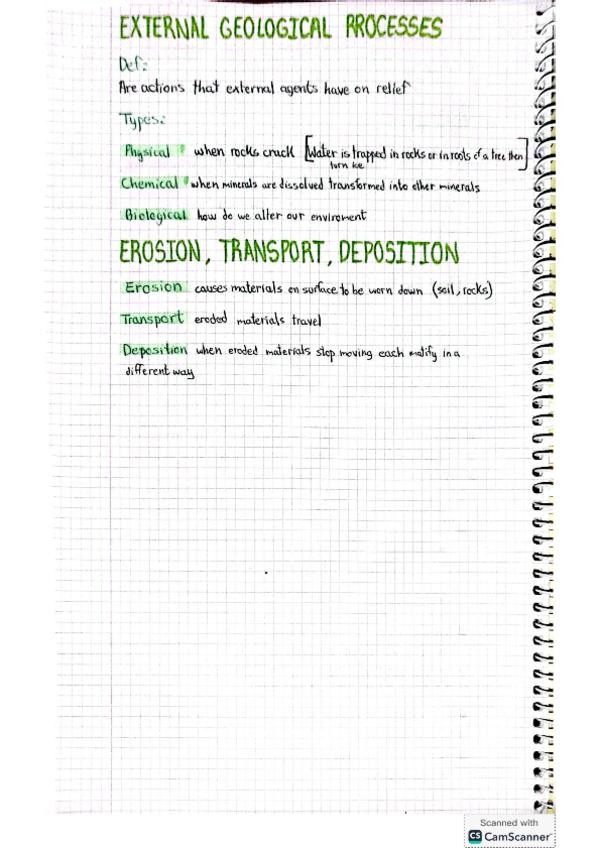 EXTERNAL GEOLOGICAL PROCESSES
Def:
Are actions that external agents have on relief
Types:
Physical : when rocks crack [Water is trapped in rocks or in roots of a tree then]
turn ice
Chemical : when minerals are dissolved transformed into other minerals
Biological how do we alter our enviroment
EROSION, TRANSPORT, DEPOSITION
Erosion causes materials on surface to be worn down (soil, rocks)
Transport eroded materials travel
Deposition when eroded materials stop moving each in a
different way
Scanned with
CS CamScanner